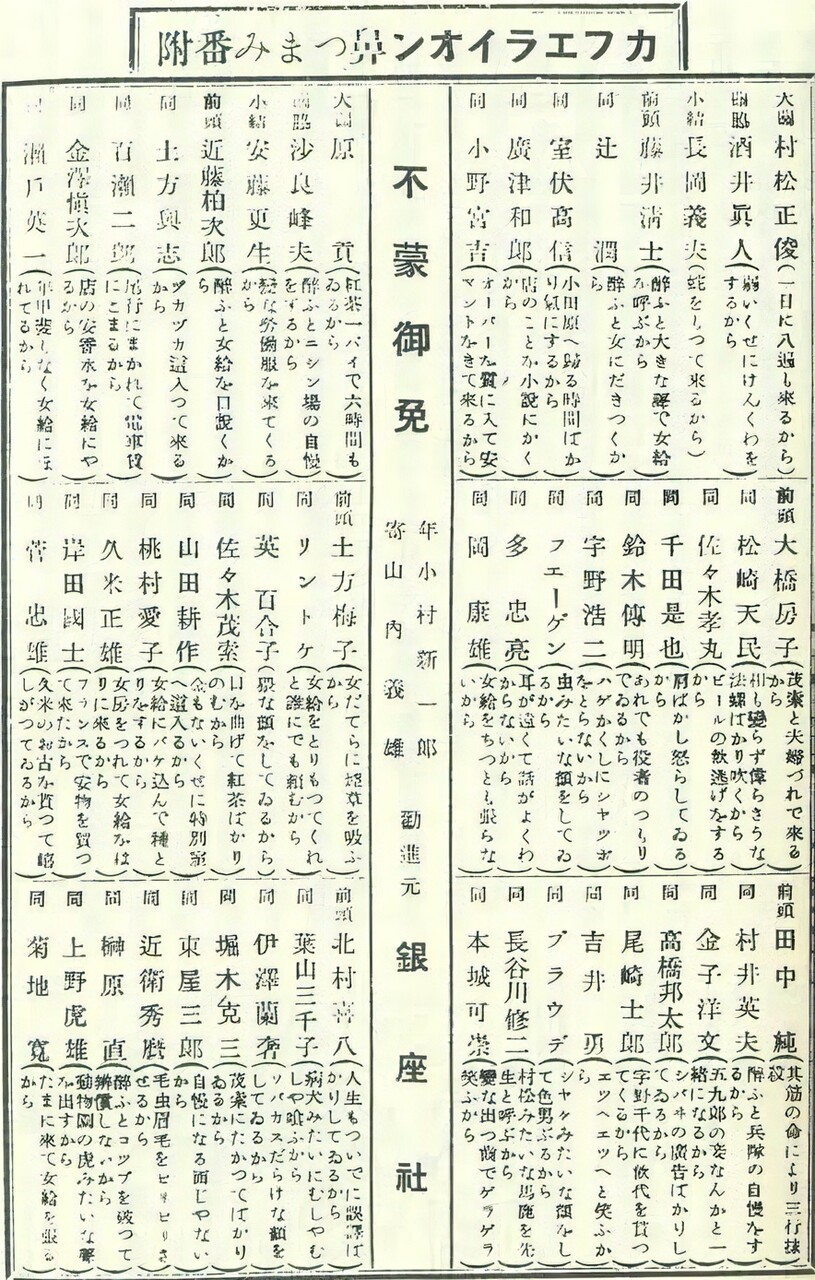 カフエライオン鼻つまみ番附
大關 村松正俊(一日に八遍も來るから)
關脇 酒井眞人(弱いくせにけんくわをするから)
小結 長岡義夫(蛇をもつて來るから)
前頭 藤井淸士(醉ふと大きな聲で女給を呼ぶから)
同 辻 潤(醉ふと女にだきつくから)
同 室伏高信(小田原へ歸る時間ばかり氣にするから)
同 廣津和郎(店のことを小説にかくから)
同 小野宮吉(オーバーを質に入て安マントをきて來るから)
前頭 大橋房子(茂索と夫婦づれで來るから)
同 松崎天民(相も變らず偉らさうな法螺ばかり吹くから)
同 佐々木孝丸(ビールの飮逃げをするから)
同 千田是也(肩ばかし怒らしてゐるから)
同 鈴木傳明(あれでも役者のつもりでゐるから)
同 宇野浩二(ハゲかくしにシヤツポをとらないから)
同 フエーゲン(虫みたいな顏をしてゐるから)
同 多 忠亮(耳が遠くて話がよくわからないから)
同 岡 康雄(女給をちつとも張らないから)
前頭 田中 純(其筋の命により三行抹殺)
同 村井英夫(醉ふと兵隊の自慢をするから)
同 金子洋文(五九郎の妾なんかと一緖になるから)
同 高橋邦太郎(シバヰの廣告ばかりしてゐるから)
同 尾崎士郎(宇野千代に依代を貰つてくるから)
同 吉井 勇(エツヘエツヘと笑ふから)
同 ブラウデ(シヤケみたいな顏をして色男ぶるから)
同 長谷川修二(村松みたいな馬鹿を先生と呼ぶから)
同 本城可崇(變な出つ齒でゲラゲラ笑ふから)
不蒙御免
年小村新一郎
寄山内義雄
勸進元 銀座社
大關 原 貢(紅茶一パイで六時間もゐるから)
關脇 沙良峰夫(醉ふとニシン場の自慢をするから)
小結 安藤更生(變な勞働服を來てくるから)
前頭 近藤柏次郎(醉ふと女給を口説くから)
同 土方與志(ヅカヅカ這入つて來るから)
同 百瀬二郎(尾行にまかれて電車賃にこまるから)
同 金澤愼次郎(店の安香水を女給にやるから)
同 瀬戸英一(年甲斐もなく女給にほれてるから)
前頭 土方梅子(女だてらに煙草を吸ふから)
同 リントケ(女給をとりもつてくれと誰にでも頼むから)
同 英 百合子(猥な顏をしてゐるから)
同 佐々木茂索(口を曲げて紅茶ばかりのむから)
同 山田耕作(金もないくせに特別室へ這入るから)
同 桃村愛子(女給にバケ込んで種とりをするから)
同 久米正雄(女房をつれて女給をはりに來るから)
同 岸田國士(フランスで安物を買つて來たから)
同 菅 忠雄(久米のお古を貰つて嬉しがつてゐるから)
前頭 北村喜八(人生もついでに誤譯ばかりしてゐるから)
同 葉山三千子(病犬みたいにむしやむしや喰ふから)
同 伊澤蘭奢(ソバカスだらけな顏をしてゐるから)
同 堀木克三(茂索にたかつてばかりゐるから)
同 東屋三郎(自慢になる面じやないから)
同 近衛秀麿(毛虫眉毛をピリピリさせるから)
同 榊原 直(醉ふとコツプを破つて辨償しないから)
同 上野虎雄(動物園の虎みたいな聲を出すから)
同 菊地 寛(たまに來て女給を張るから)